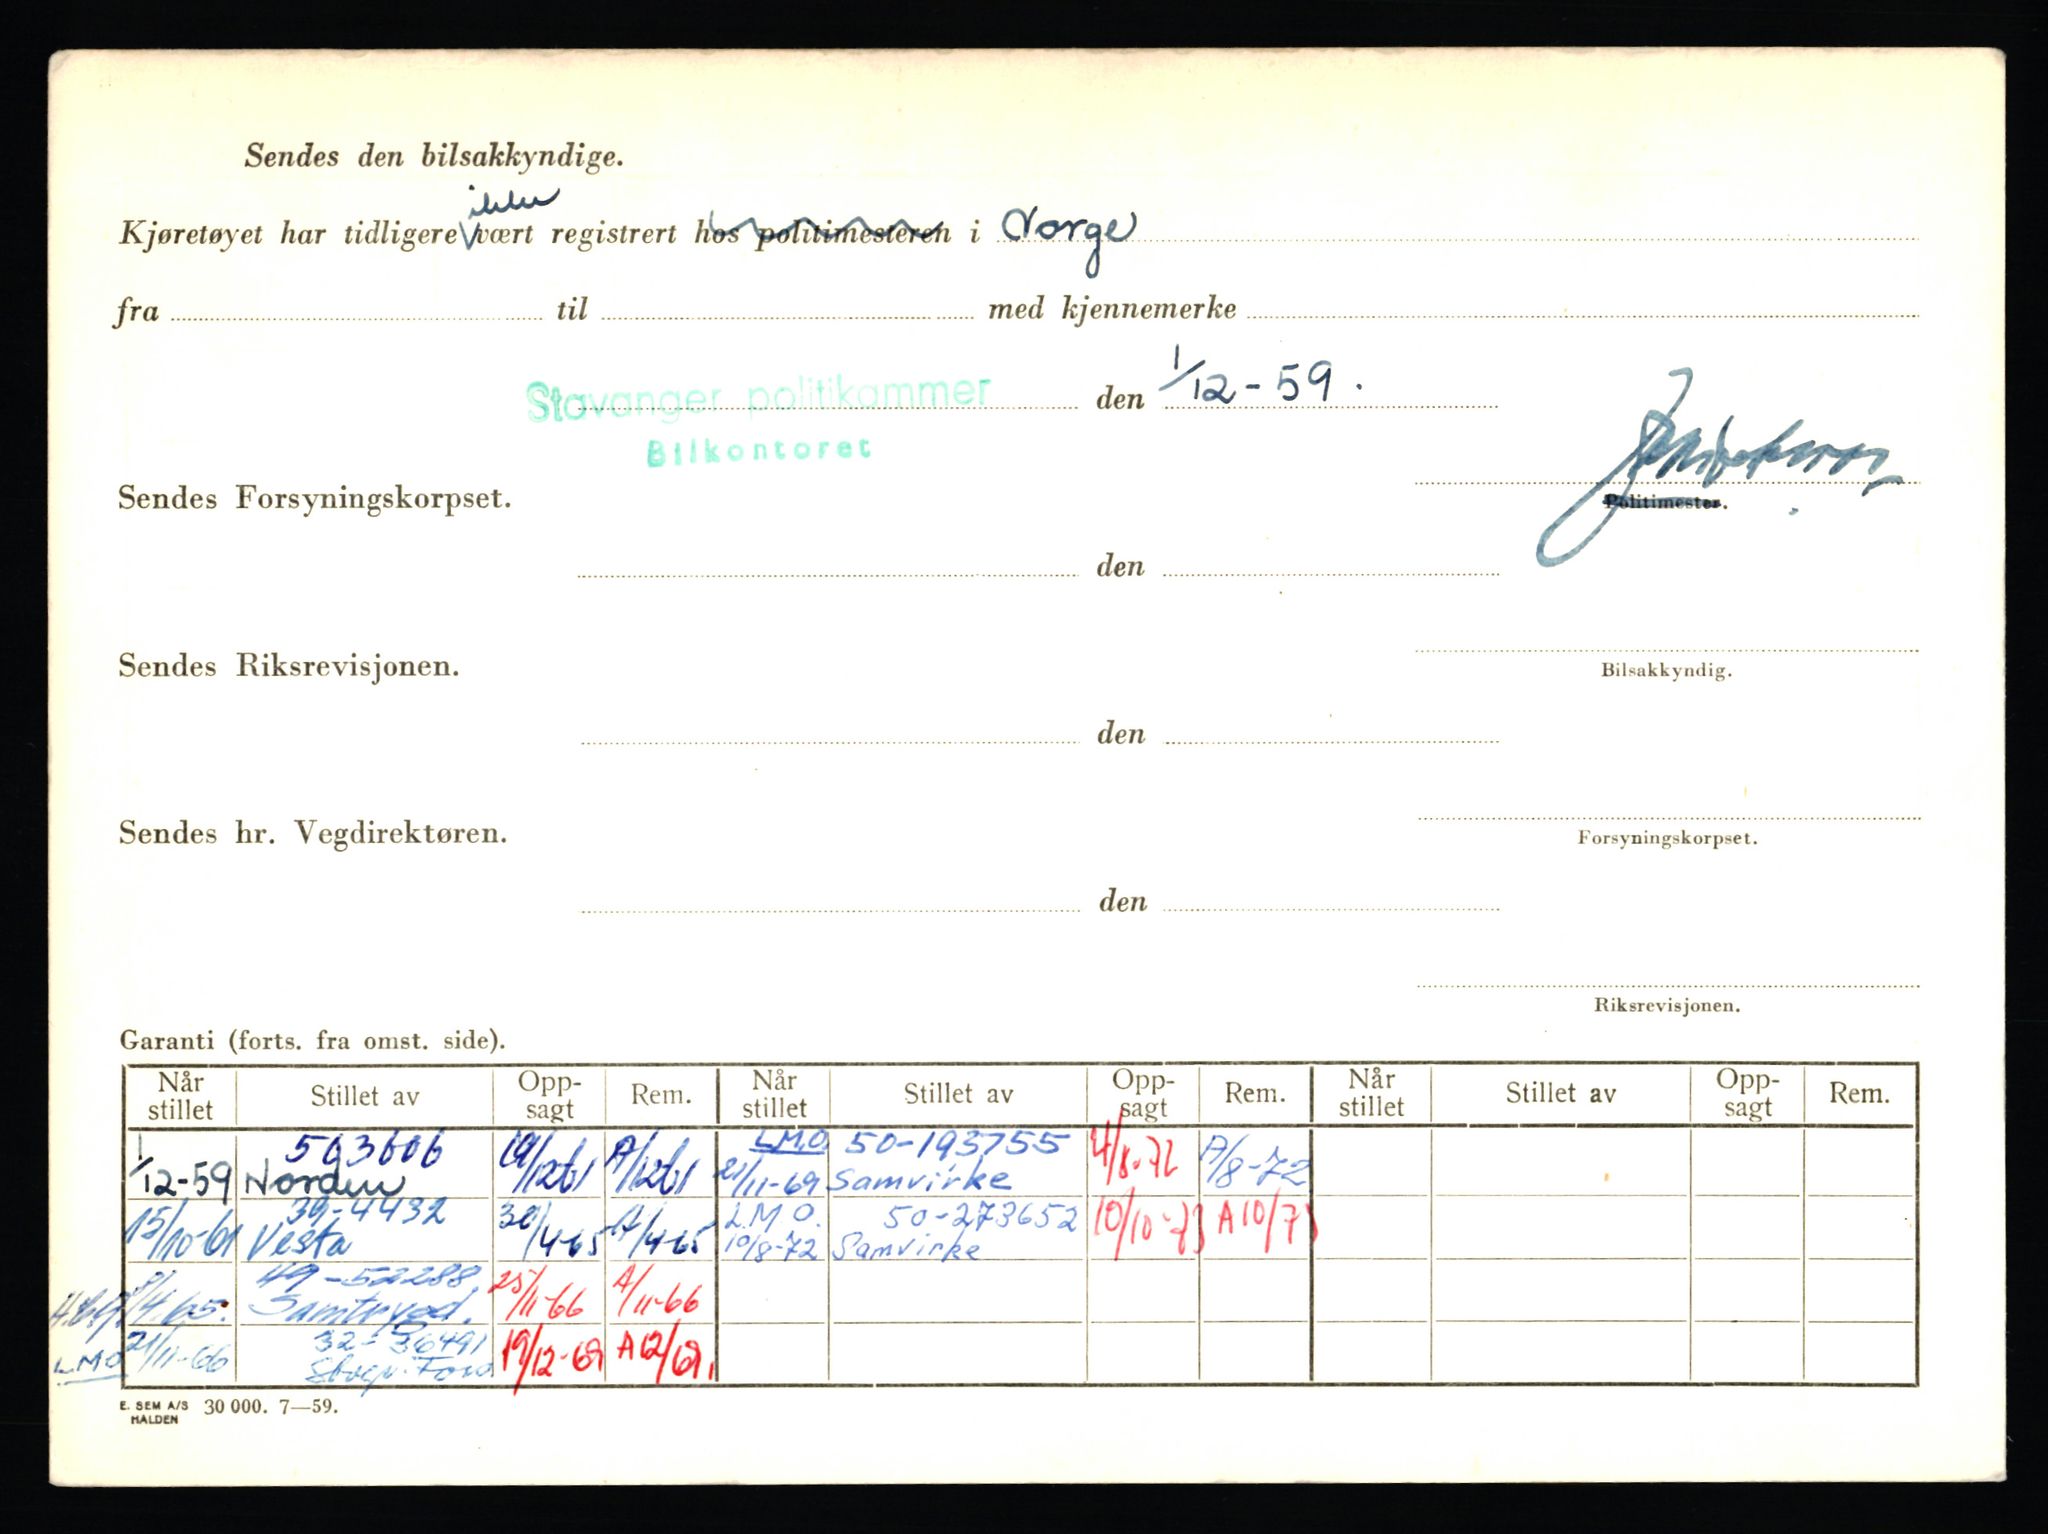 Sendes den bilsakkyndige.
Kjøretøyet har tidligere ikke vært registrert hos politimesteren i Norge
fra til med kjennemerke
Stavanger politikammer den 1/12-59.
Bilkontoret
Sendes Forsyningskorpset.
Politimester.
den
Sendes Riksrevisjonen.
Bilsakkyndig.
den
Sendes hr. Vegdirektøren.
Forsyningskorpset.
den
Riksrevisjonen.
Garanti (forts. fra omst. side).
Når stillet Stillet av Opp-sagt Rem. Når stillet Stillet av Opp-sagt Rem. Når stillet Stillet av Opp-sagt Rem.
503606 L.M.O 50-193755
1/12-59 Norden 19/12 61 A/12 61 21/11-69 Samvirke 4/8-72 A/8-72
39-4432 L.M.O. 50-273652
15/10-61 Vesta 30/4-65 A/4-65 10/8-72 Samvirke 10/10-73 A10/73
49-52288
/4.65. Samtrygd. 25/11-66 A/11-66
32-36491
L.M.O 21/11-66 Ford 19/12-69 A12/69.
E. SEM A/S
HALDEN 30 000. 7—59.